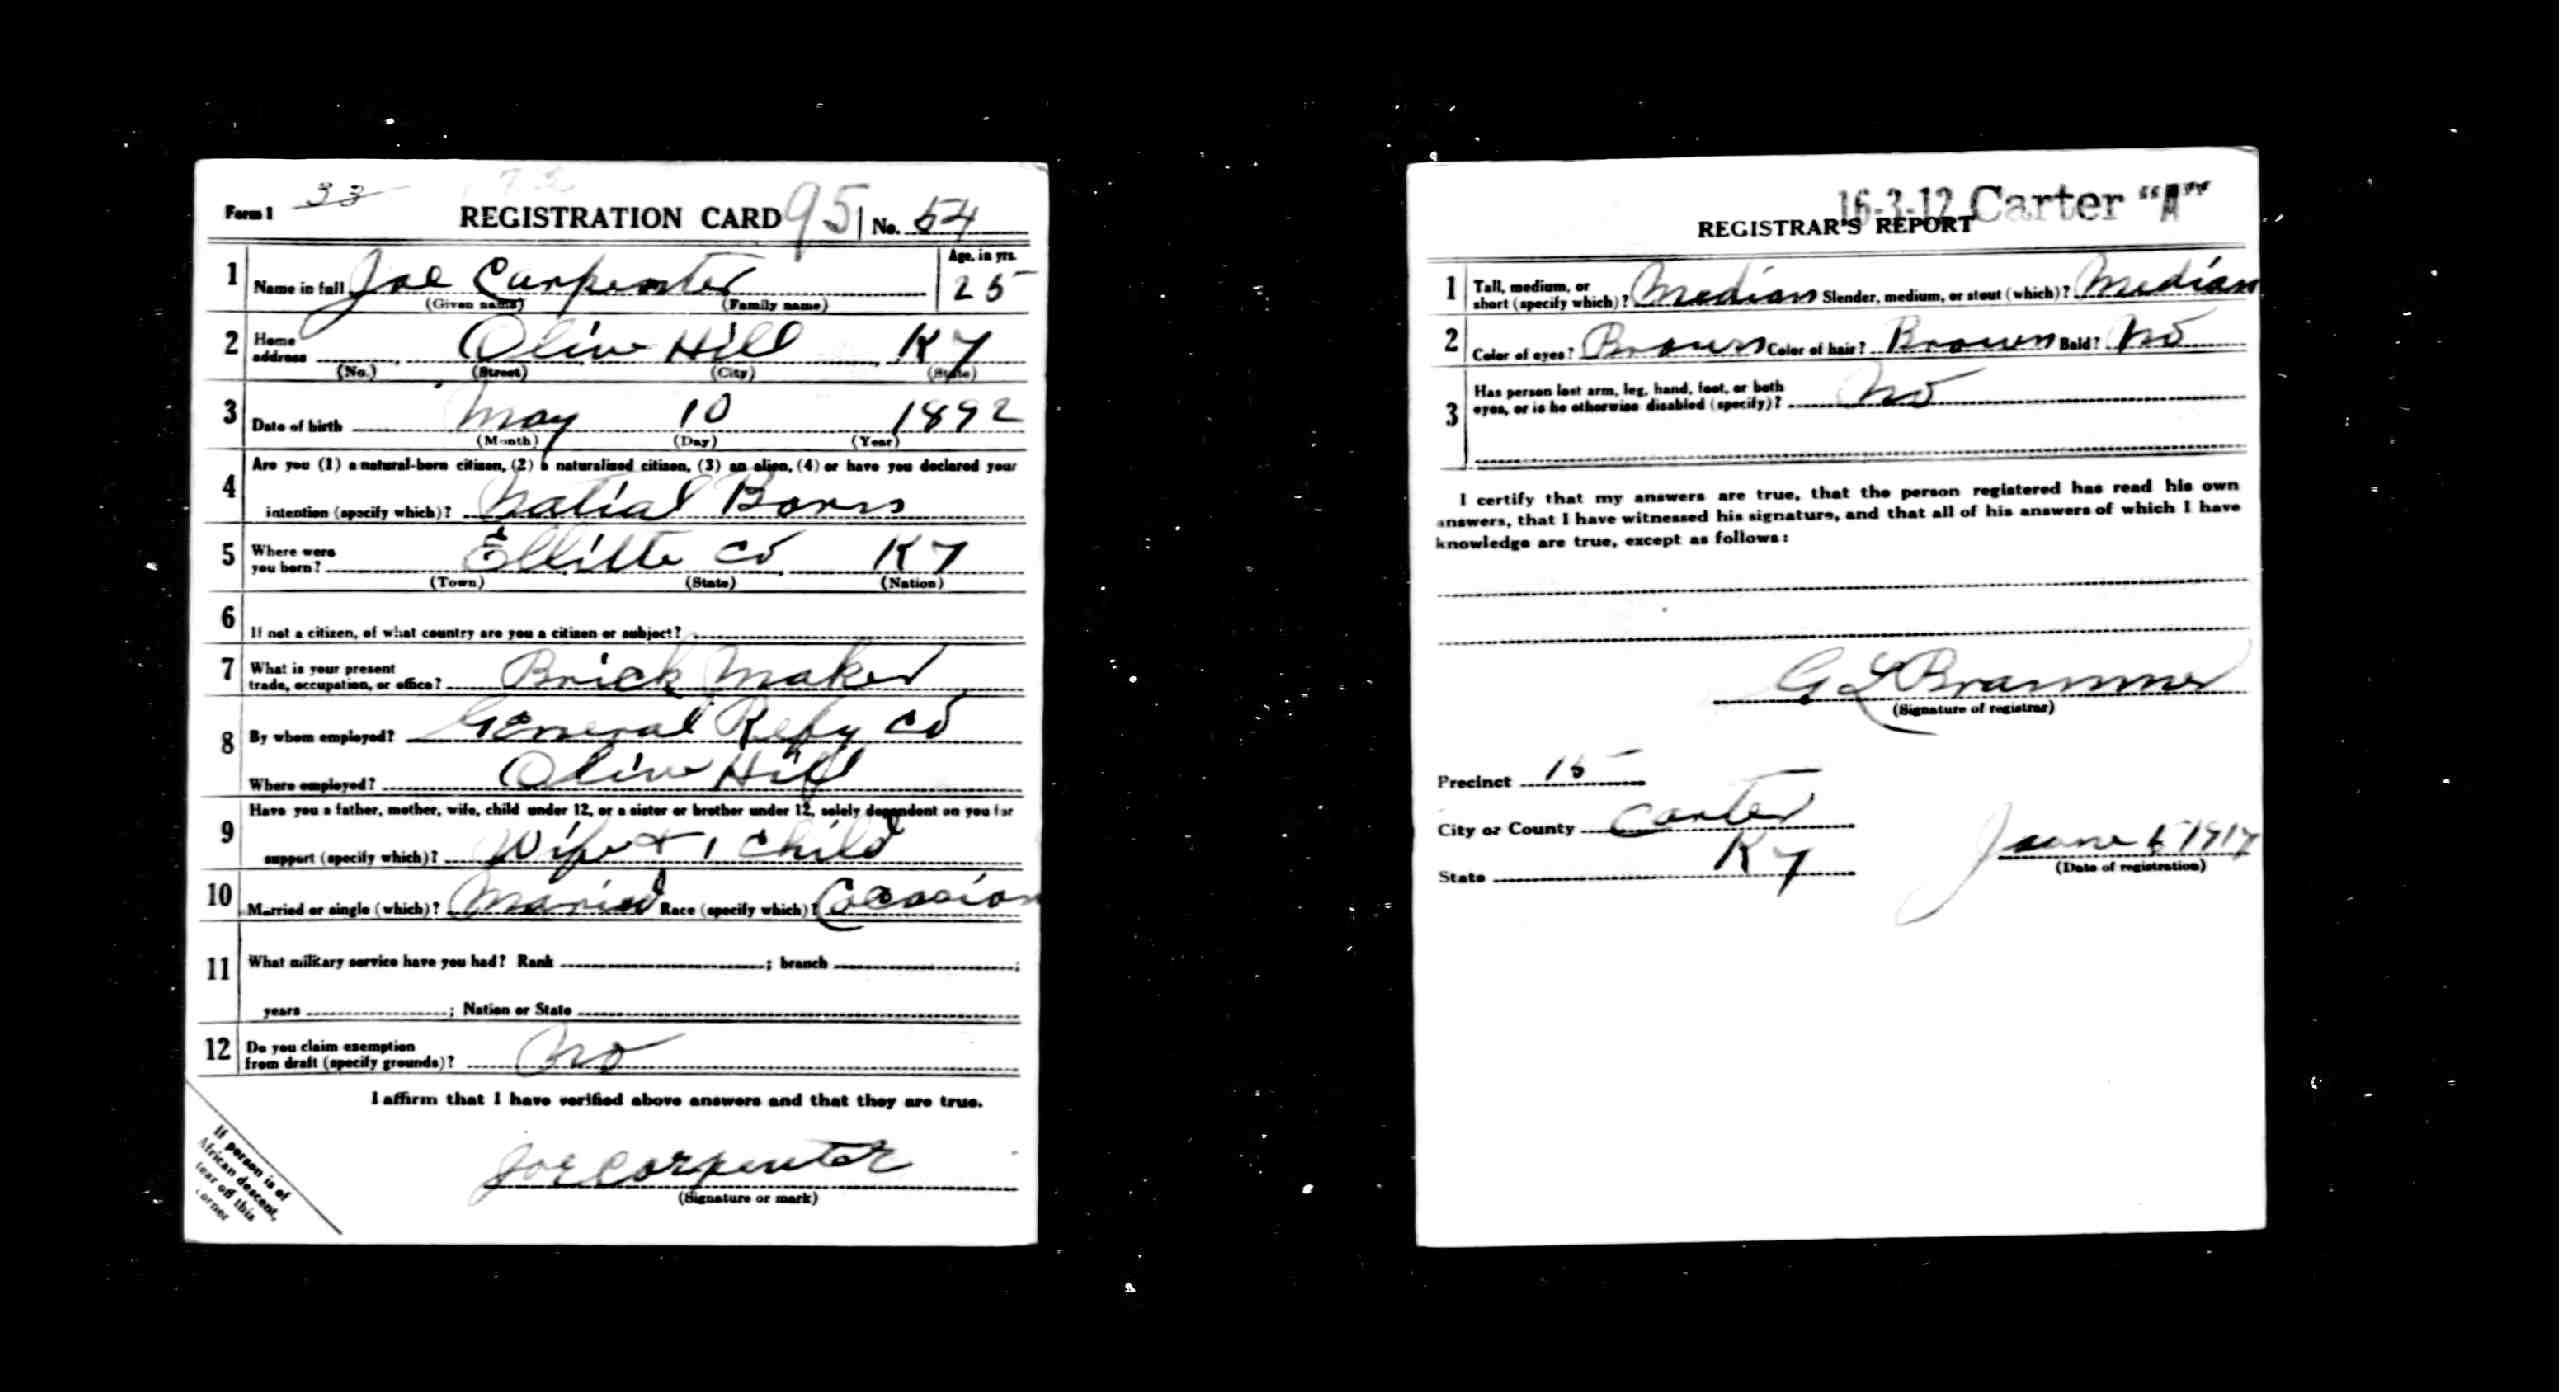 Form 1 33
REGISTRATION CARD 95 No. 54
1 Name in full Joe Carpenter Age, in yrs. 25
(Given name) (Family name)
2 Home address Olive Hill Ky
(No.) (Street) (City) (State)
3 Date of birth May 10 1892
(Month) (Day) (Year)
4 Are you (1) a natural-born citizen, (2) a naturalized citizen, (3) an alien, (4) or have you declared your
intention (specify which)? Natial Born
5 Where were you born? Elliotte Co Ky
(Town) (State) (Nation)
6 If not a citizen, of what country are you a citizen or subject?
7 What is your present trade, occupation, or office? Brick Maker
8 By whom employed? General Refy Co
Where employed? Olive Hill
9 Have you a father, mother, wife, child under 12, or a sister or brother under 12, solely dependent on you for
support (specify which)? Wife + 1 child
10 Married or single (which)? Maried Race (specify which)? Cocasion
11 What military service have you had? Rank ; branch ;
years ; Nation or State
12 Do you claim exemption from draft (specify grounds)? No
I affirm that I have verified above answers and that they are true.
Joe Carpenter
(Signature or mark)
If person is of
African descent,
tear off this
corner
16-3-12 Carter "A"
REGISTRAR'S REPORT
1 Tall, medium, or short (specify which)? Median Slender, medium, or stout (which)? Median
2 Color of eyes? Brown Color of hair? Brown Bald? No
3 Has person lost arm, leg, hand, foot, or both
eyes, or is he otherwise disabled (specify)? No
I certify that my answers are true, that the person registered has read his own
answers, that I have witnessed his signature, and that all of his answers of which I have
knowledge are true, except as follows:
G L Brammer
(Signature of registrar)
Precinct 15
City or County Carter
State Ky
June 5 1917
(Date of registration)